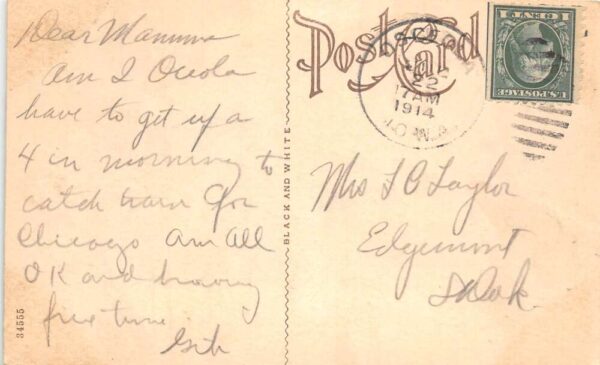 Dear Mamma
Am I Oceola
have to get up a
4 in morning to
catch train for
Chicago Am All
OK and having
fine time.
Post Card
22
7 AM
1914
IOWA
1 CENT 1
U.S. POSTAGE
Mrs L C Taylor
Edgemont
S Dak.
BLACK AND WHITE
34555